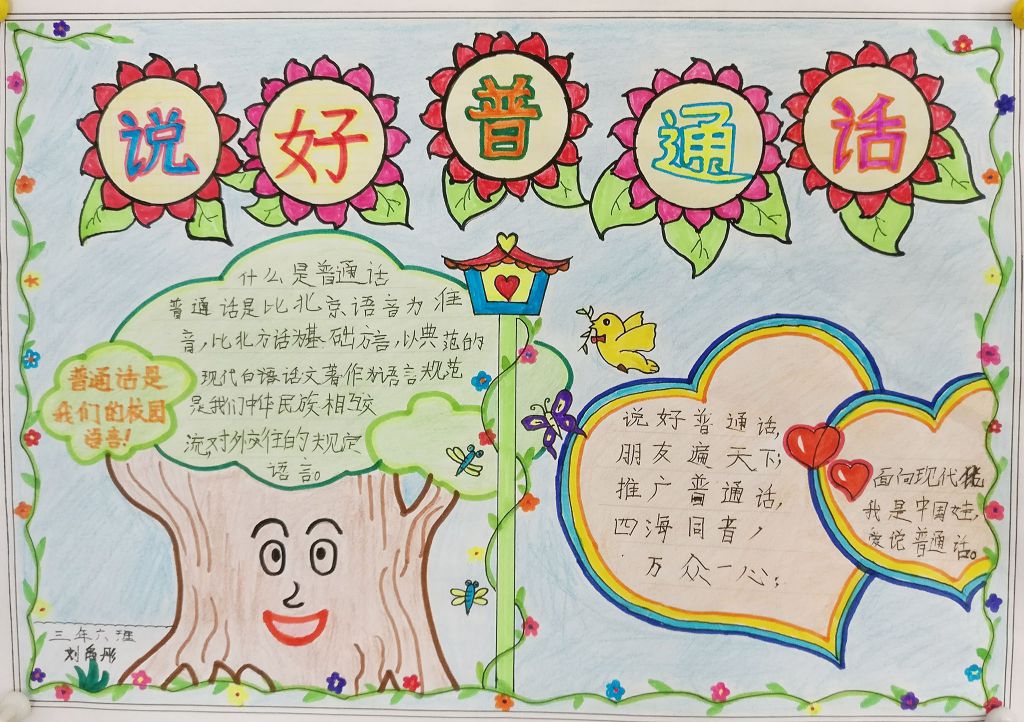 说好普通话
什么是普通话
普通话是比北京语音为准
音,比北方话为基础方言,以典范的
现代白话文著作为语言规范
是我们中华民族相互交
流对外交往的规定
语言。
普通话是
我们的校园
语言!
说好普通话,
朋友遍天下;
推广普通话,
四海同音,
万众一心;
面向现代化
我是中国娃,
爱说普通话。
三年六班